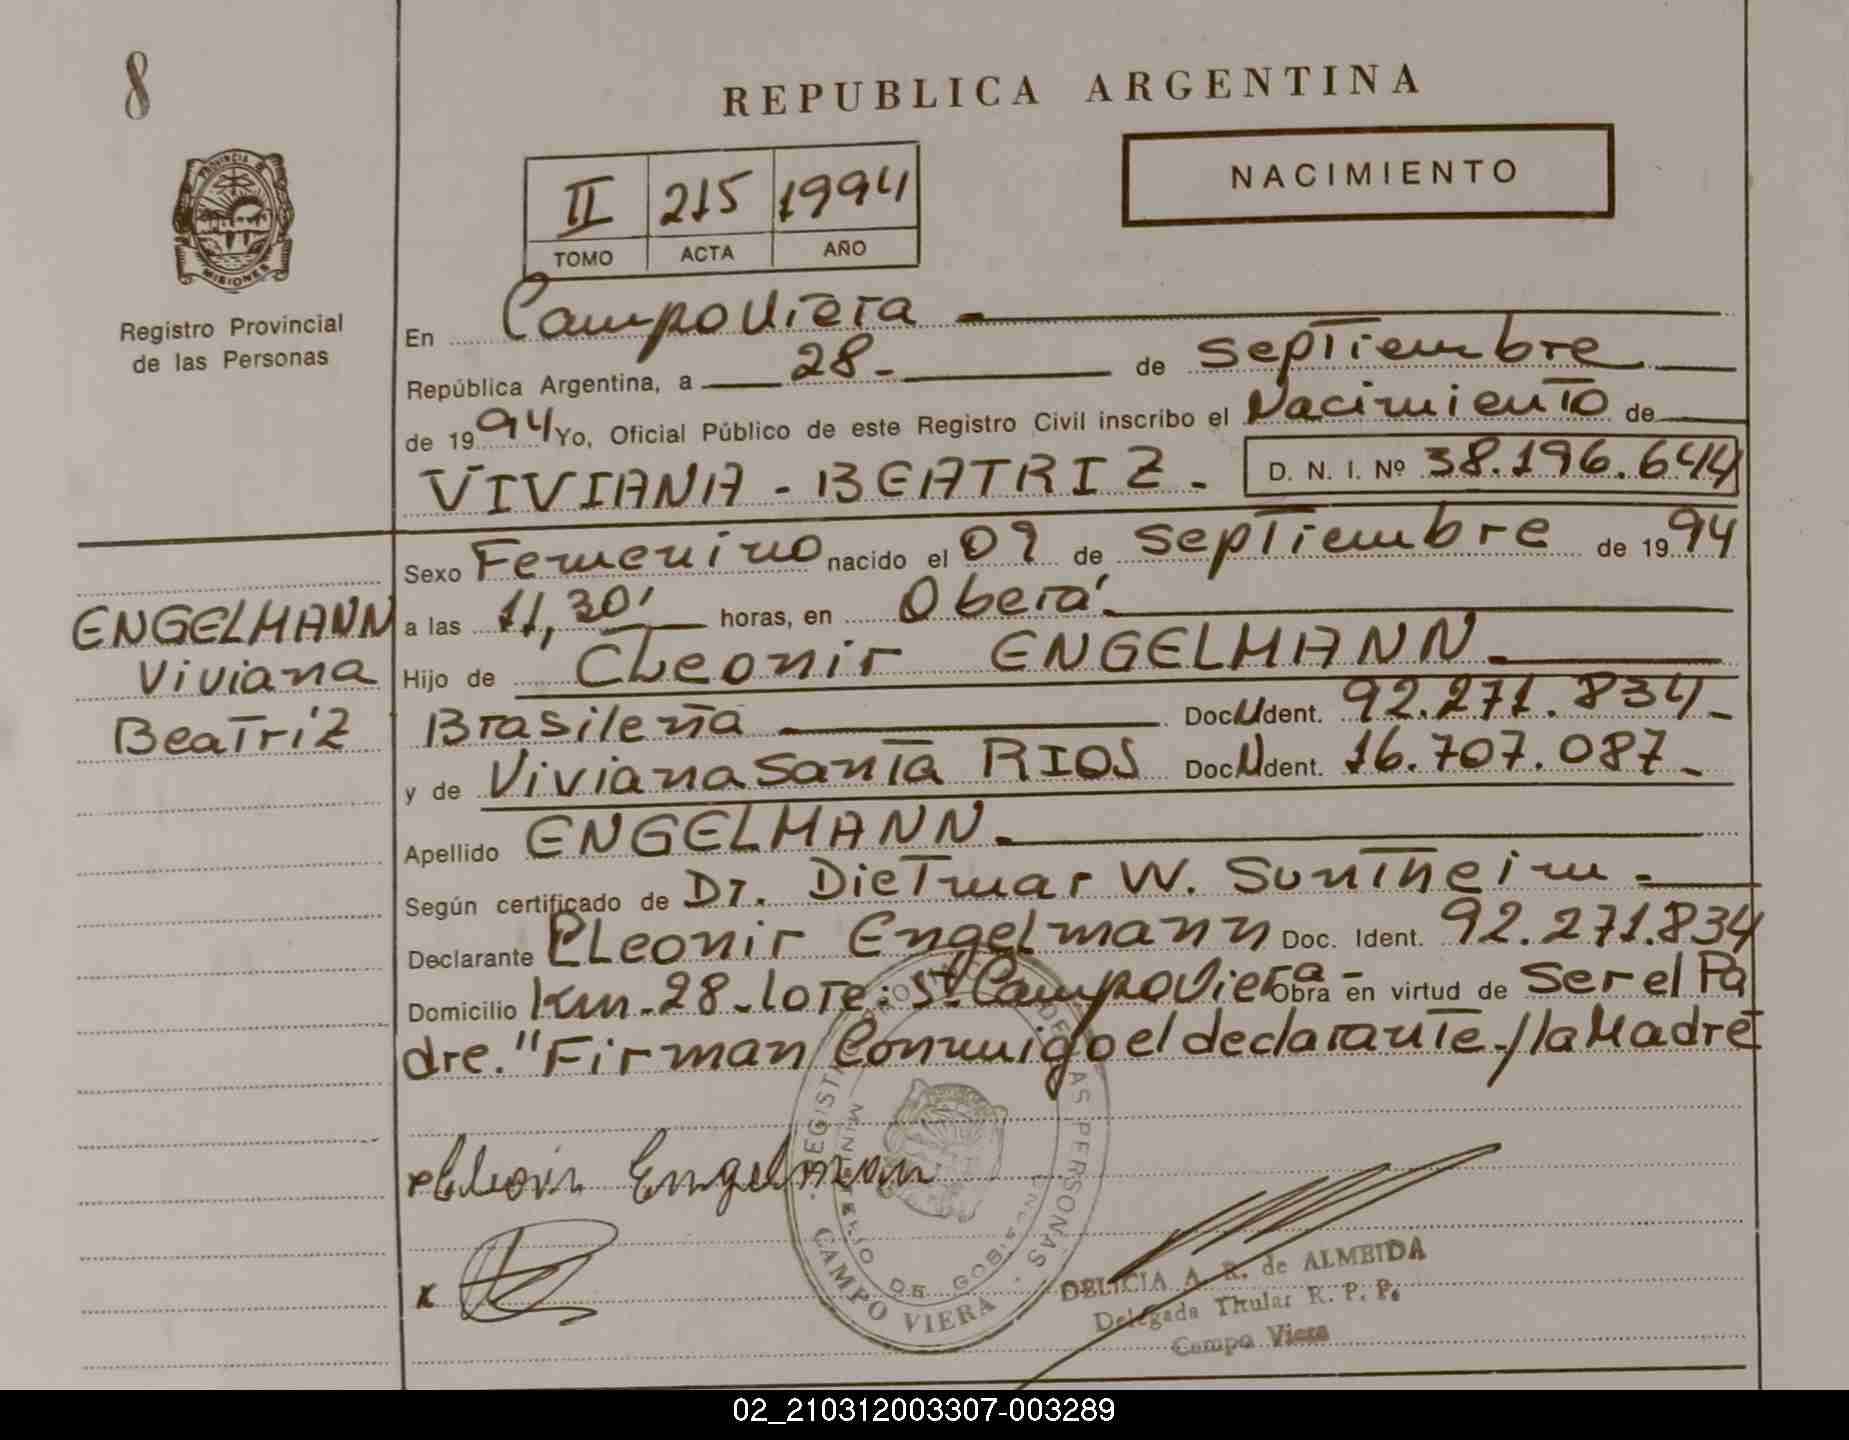 8
REPUBLICA ARGENTINA
PROVINCIA DE
MISIONES
II 215 1994
TOMO ACTA AÑO
NACIMIENTO
Registro Provincial
de las Personas
En Campo Viera
República Argentina, a 28 - de septiembre
de 1994 Yo, Oficial Público de este Registro Civil inscribo el Nacimiento de
VIVIANA - BEATRIZ - D. N. I. Nº 38.196.644
Sexo Femenino nacido el 09 de septiembre de 1994
a las 11,30' horas, en Oberá.
Hijo de CLeonir ENGELMANN
Brasileña Doc. Ident. 92.271.834 -
y de Viviana Santa RIOS Doc. Ident. 16.707.087 -
Apellido ENGELMANN.
Según certificado de Dr. Dietmar W. Suntheim -
Declarante CLeonir Engelmann Doc. Ident. 92.271.834
Domicilio Km - 28 - Lote: St Campo Viera - Obra en virtud de Ser el Pa
dre. "Firman Conmigo el declarante / la Madre
ENGELMANN
Viviana
Beatriz
Engelmann
x
REGISTRO DE LAS PERSONAS
MINISTERIO DE GOBIERNO
CAMPO VIERA
DELICIA A. R. de ALMEIDA
Delegada Titular R. P. P.
Campo Viera
02_210312003307-003289